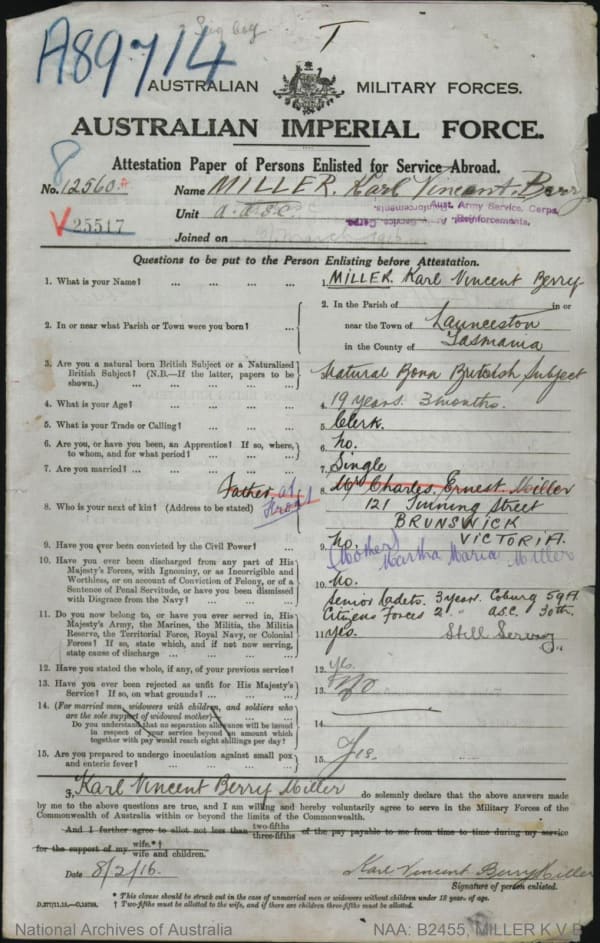 A89714
Sig boy
T
AUSTRALIAN MILITARY FORCES.
AUSTRALIAN IMPERIAL FORCE.
Attestation Paper of Persons Enlisted for Service Abroad.
8
No. 12560 A Name MILLER. Karl Vincent Berry
V 25517
Unit a.a.s.c.
Aust. Army Service Corps,
Reinforcements.
Joined on March
Questions to be put to the Person Enlisting before Attestation.
1. What is your Name? ... ... ... ... 1. MILLER Karl Vincent Berry
2. In or near what Parish or Town were you born? ... 2. In the Parish of in or
near the Town of Launceston
in the County of Tasmania
3. Are you a natural born British Subject or a Naturalized
British Subject? (N.B.—If the latter, papers to be
shown.) ... ... ... ... 3. Natural Born British Subject
4. What is your Age? ... ... ... ... 4. 19 years. 3 months.
5. What is your Trade or Calling? ... ... ... 5. Clerk.
6. Are you, or have you been, an Apprentice? If so, where,
to whom, and for what period? ... ... ... 6. No.
7. Are you married? ... ... ... ... 7. Single
Father at Front
8. Who is your next of kin? (Address to be stated) 8. Mr Charles Ernest Miller
121 Tinning Street
BRUNSWICK
VICTORIA.
(Mother) Martha Maria Miller
9. Have you ever been convicted by the Civil Power? ... 9. No.
10. Have you ever been discharged from any part of His
Majesty's Forces, with Ignominy, or as Incorrigible and
Worthless, or on account of Conviction of Felony, or of a
Sentence of Penal Servitude, or have you been dismissed
with Disgrace from the Navy? ... ... ... 10. No.
11. Do you now belong to, or have you ever served in, His
Majesty's Army, the Marines, the Militia, the Militia
Reserve, the Territorial Force, Royal Navy, or Colonial
Forces? If so, state which, and if not now serving,
state cause of discharge ... ... ...
Senior Cadets. 3 years. Coburg 59A
Citizens Forces 2 " A.S.C. 30th.
11. Yes. Still Serving.
12. Have you stated the whole, if any, of your previous service? 12. Yes.
13. Have you ever been rejected as unfit for His Majesty's
Service? If so, on what grounds? ... ... ... 13. No
14. (For married men, widowers with children, and soldiers who
are the sole support of widowed mother)— ... ...
Do you understand that no separation allowance will be issued
in respect of your service beyond an amount which
together with pay would reach eight shillings per day? 14.
15. Are you prepared to undergo inoculation against small pox
and enteric fever? ... ... ... ... 15. Yes.
I, Karl Vincent Berry Miller do solemnly declare that the above answers made
by me to the above questions are true, and I am willing and hereby voluntarily agree to serve in the Military Forces of the
Commonwealth of Australia within or beyond the limits of the Commonwealth.
And I further agree to allot not less than two-fifths three-fifths of the pay payable to me from time to time during my service
for the support of my wife.*† wife and children.
Date 8/2/16. Karl Vincent Berry Miller
Signature of person enlisted.
* This clause should be struck out in the case of unmarried men or widowers without children under 18 years of age.
† Two-fifths must be allotted to the wife, and if there are children three-fifths must be allotted.
National Archives of Australia NAA: B2455, MILLER K V B